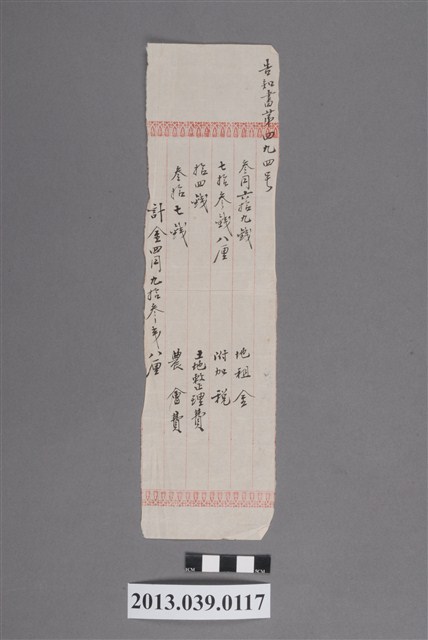 告知書第四九四号
叁円六拾九錢 地租金
七拾叁錢八厘 附加税
拾四錢 土地整理費
叁拾七錢 農會費
計金四円九拾叁錢八厘
CM
CM
2013.039.0117